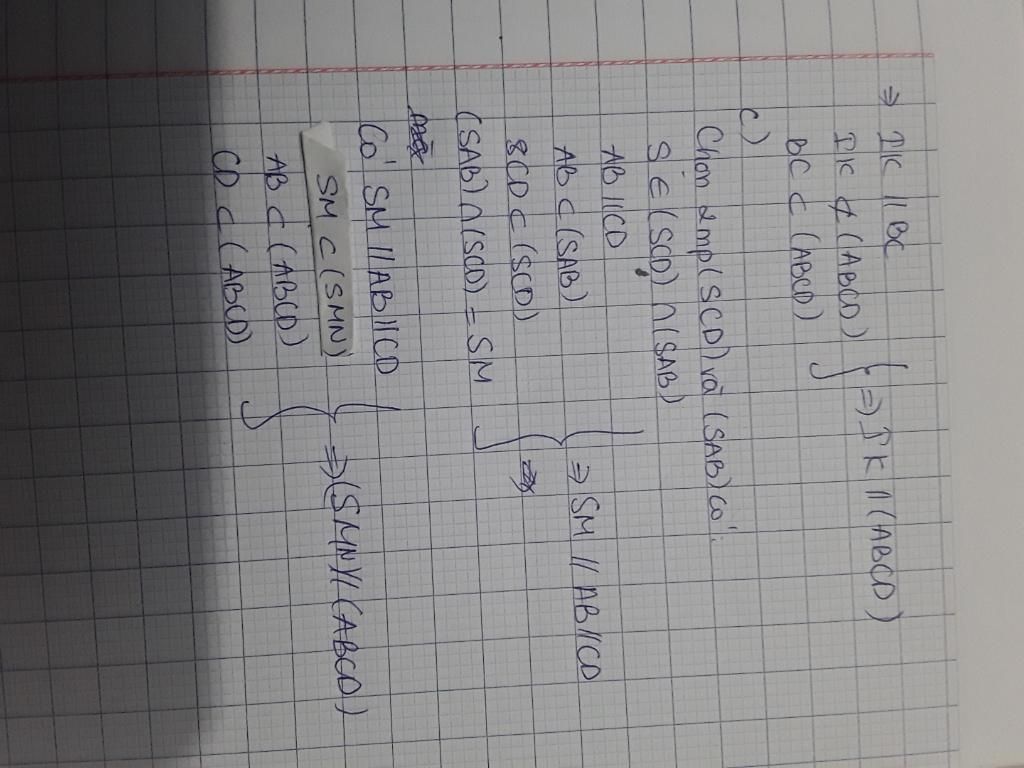 ⇒ IK // BC
IK ⊄ (ABCD) } ⇒ IK // (ABCD)
BC ⊂ (ABCD)
c)
Chọn 2mp (SCD) và (SAB) có:
S ∈ (SCD) ∩ (SAB)
AB // CD
AB ⊂ (SAB) } ⇒ SM // AB // CD
CD ⊂ (SCD)
(SAB) ∩ (SCD) = SM
Có SM // AB // CD
SM ⊂ (SMN) } ⇒ (SMN) // (ABCD)
AB ⊂ (ABCD)
CD ⊂ (ABCD)